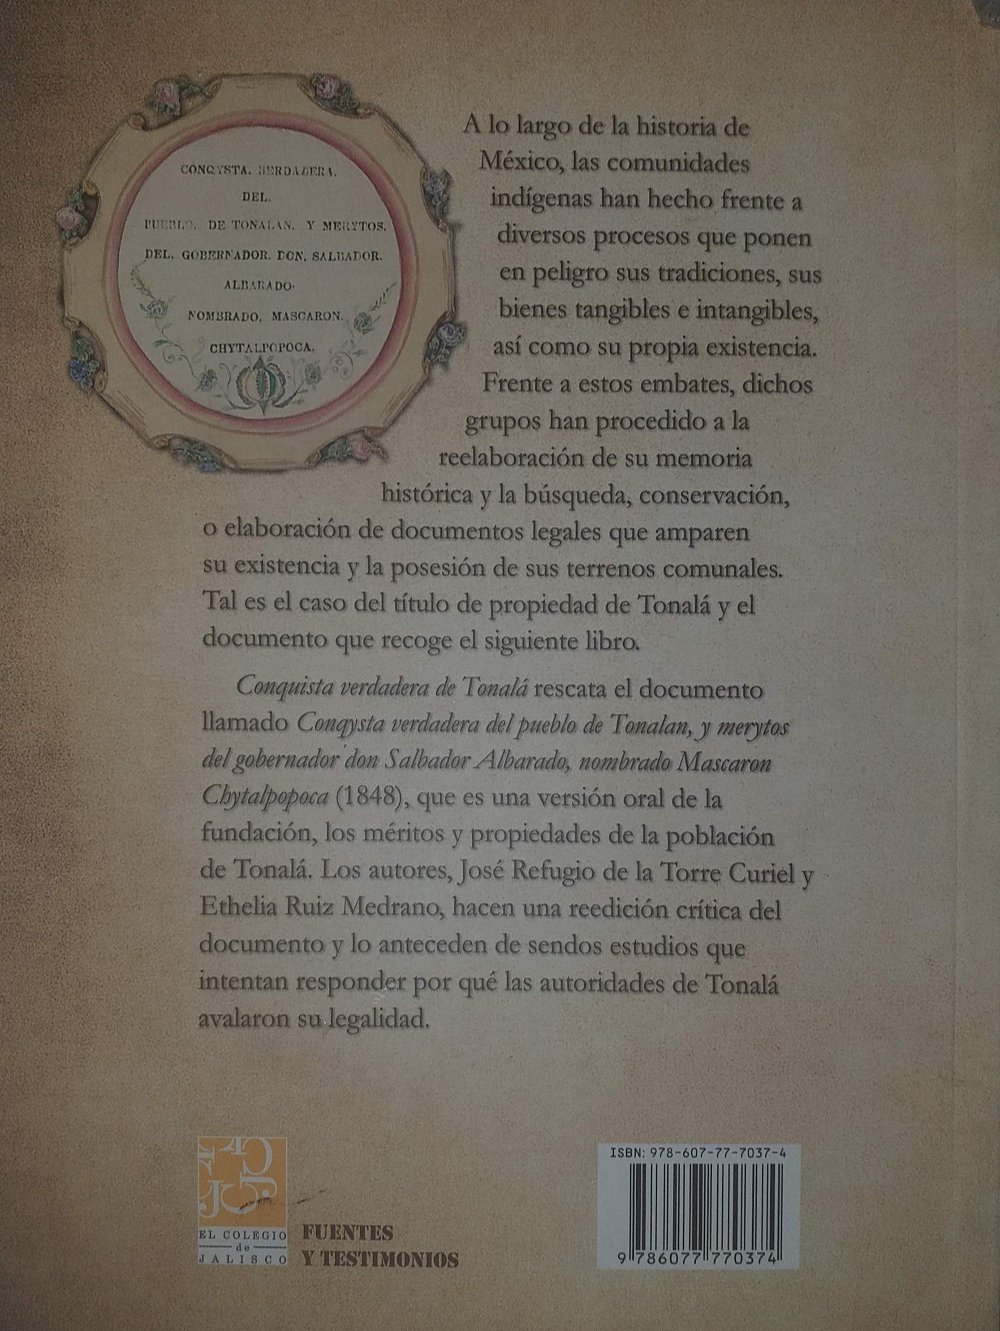 CONQYSTA. BERDADERA.
DEL.
PUEBLO. DE TONALAN. Y MERYTOS.
DEL. GOBERNADOR. DON. SALBADOR.
ALBARADO.
NOMBRADO. MASCARON.
CHYTALPOPOCA.
A lo largo de la historia de
México, las comunidades
indígenas han hecho frente a
diversos procesos que ponen
en peligro sus tradiciones, sus
bienes tangibles e intangibles,
así como su propia existencia.
Frente a estos embates, dichos
grupos han procedido a la
reelaboración de su memoria
histórica y la búsqueda, conservación,
o elaboración de documentos legales que amparen
su existencia y la posesión de sus terrenos comunales.
Tal es el caso del título de propiedad de Tonalá y el
documento que recoge el siguiente libro.
Conquista verdadera de Tonalá rescata el documento
llamado Conqysta verdadera del pueblo de Tonalan, y merytos
del gobernador don Salbador Albarado, nombrado Mascaron
Chytalpopoca (1848), que es una versión oral de la
fundación, los méritos y propiedades de la población
de Tonalá. Los autores, José Refugio de la Torre Curiel y
Ethelia Ruiz Medrano, hacen una reedición crítica del
documento y lo anteceden de sendos estudios que
intentan responder por qué las autoridades de Tonalá
avalaron su legalidad.
EL COLEGIO
de
JALISCO
FUENTES
Y TESTIMONIOS
ISBN: 978-607-77-7037-4
9 786077 770374